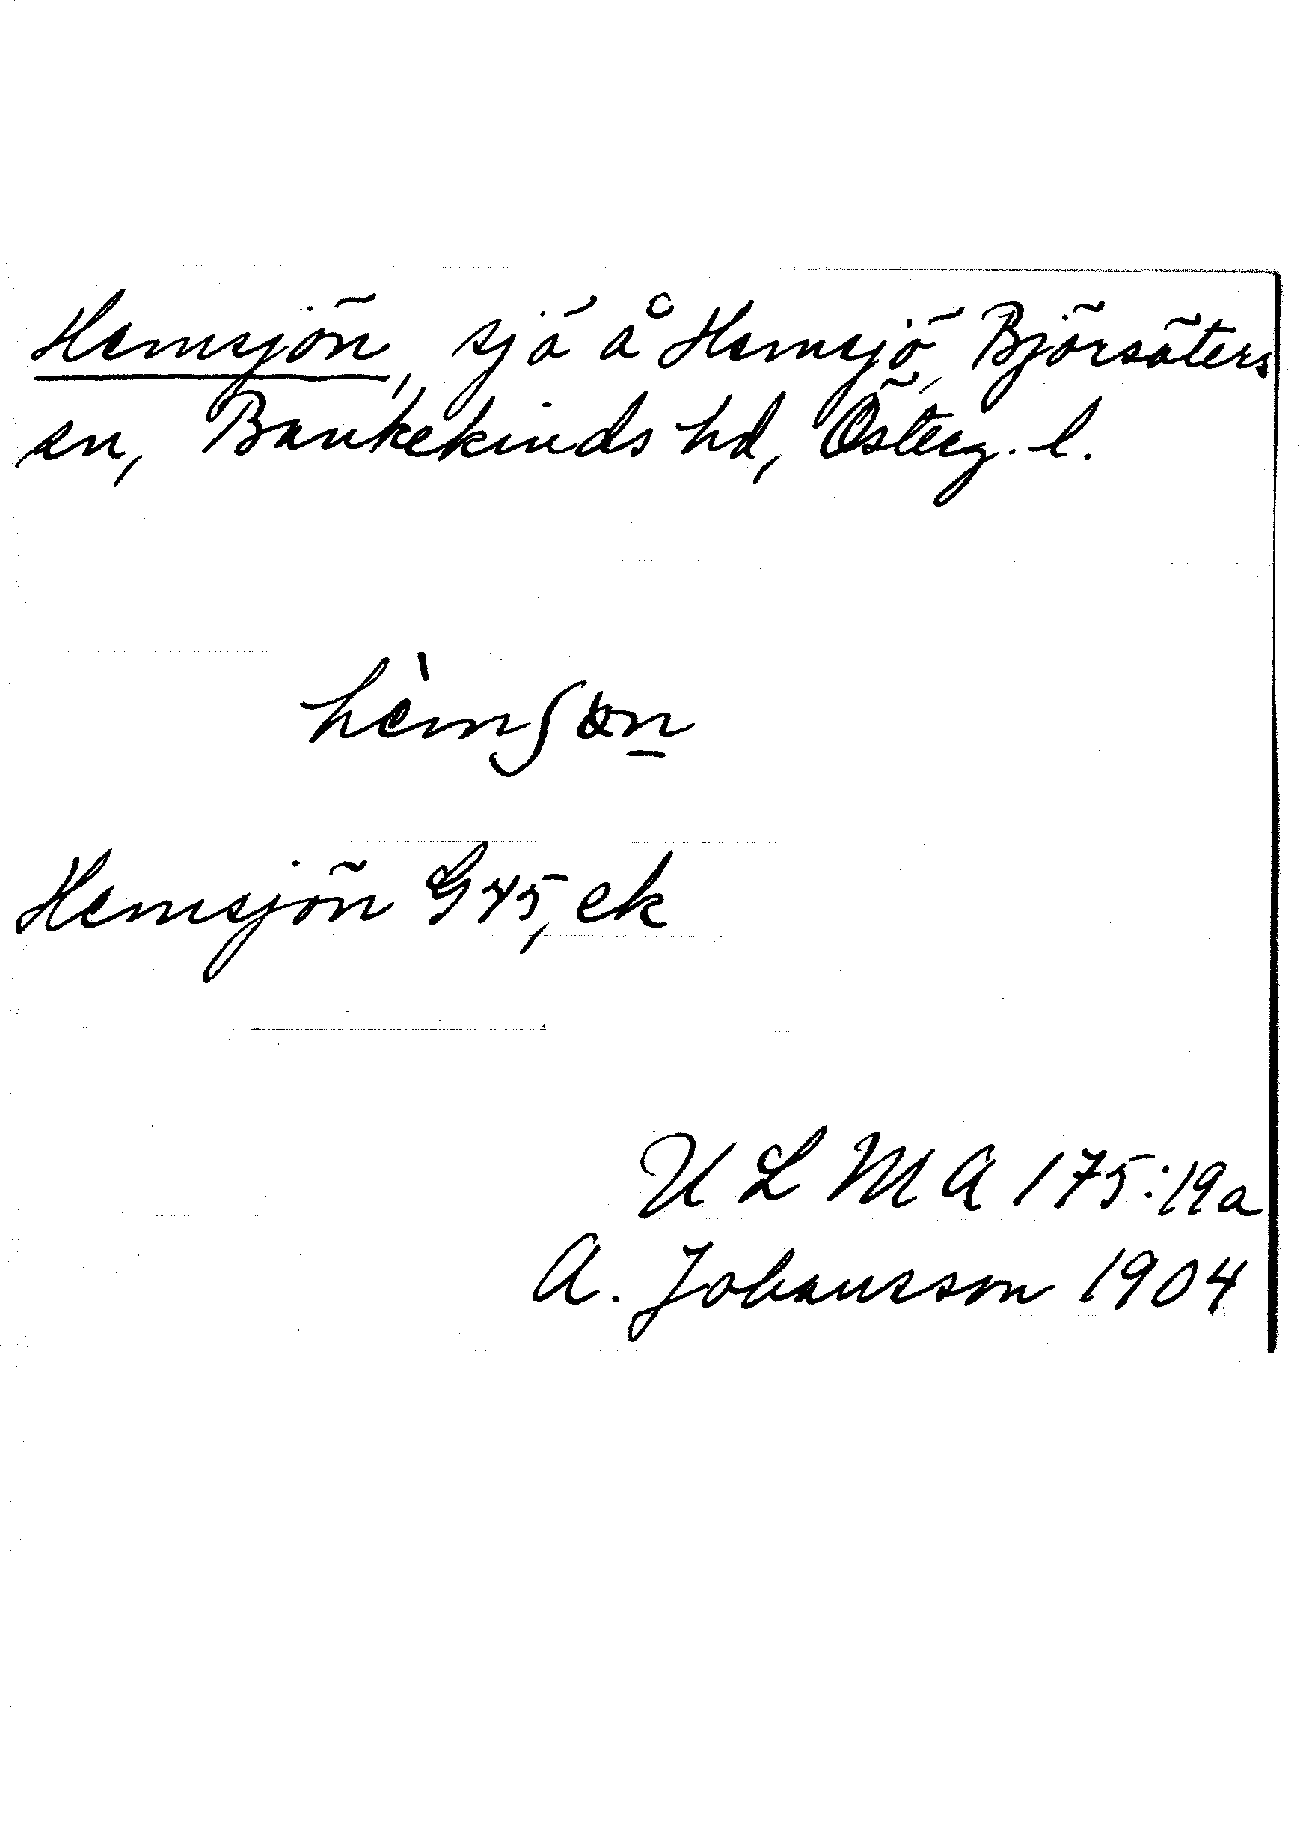 Hemsjön, sjö å Hemsjö, Björsäters
sn, Bankekinds hd, Österg. l.
hèmʃɵn̲
Hemsjön G45, ek
ULMA 175:19a
A. Johansson 1904